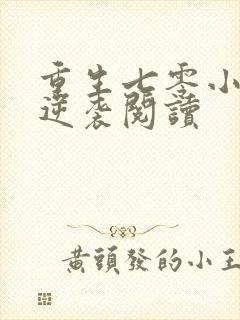 重生七零小
逆袭閱讀
黃頭發的小王